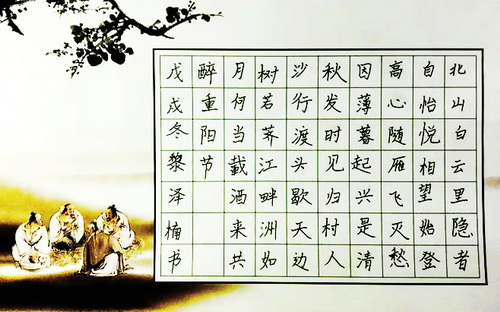 北山白云里隐者
自怡悦相望始登
高心随雁飞灭愁
因薄暮起兴是清
秋发时见归村人
沙行渡头歇天边
树若荠江畔洲如
月何当载酒来共
醉重阳节
戊戌冬黎泽楠书